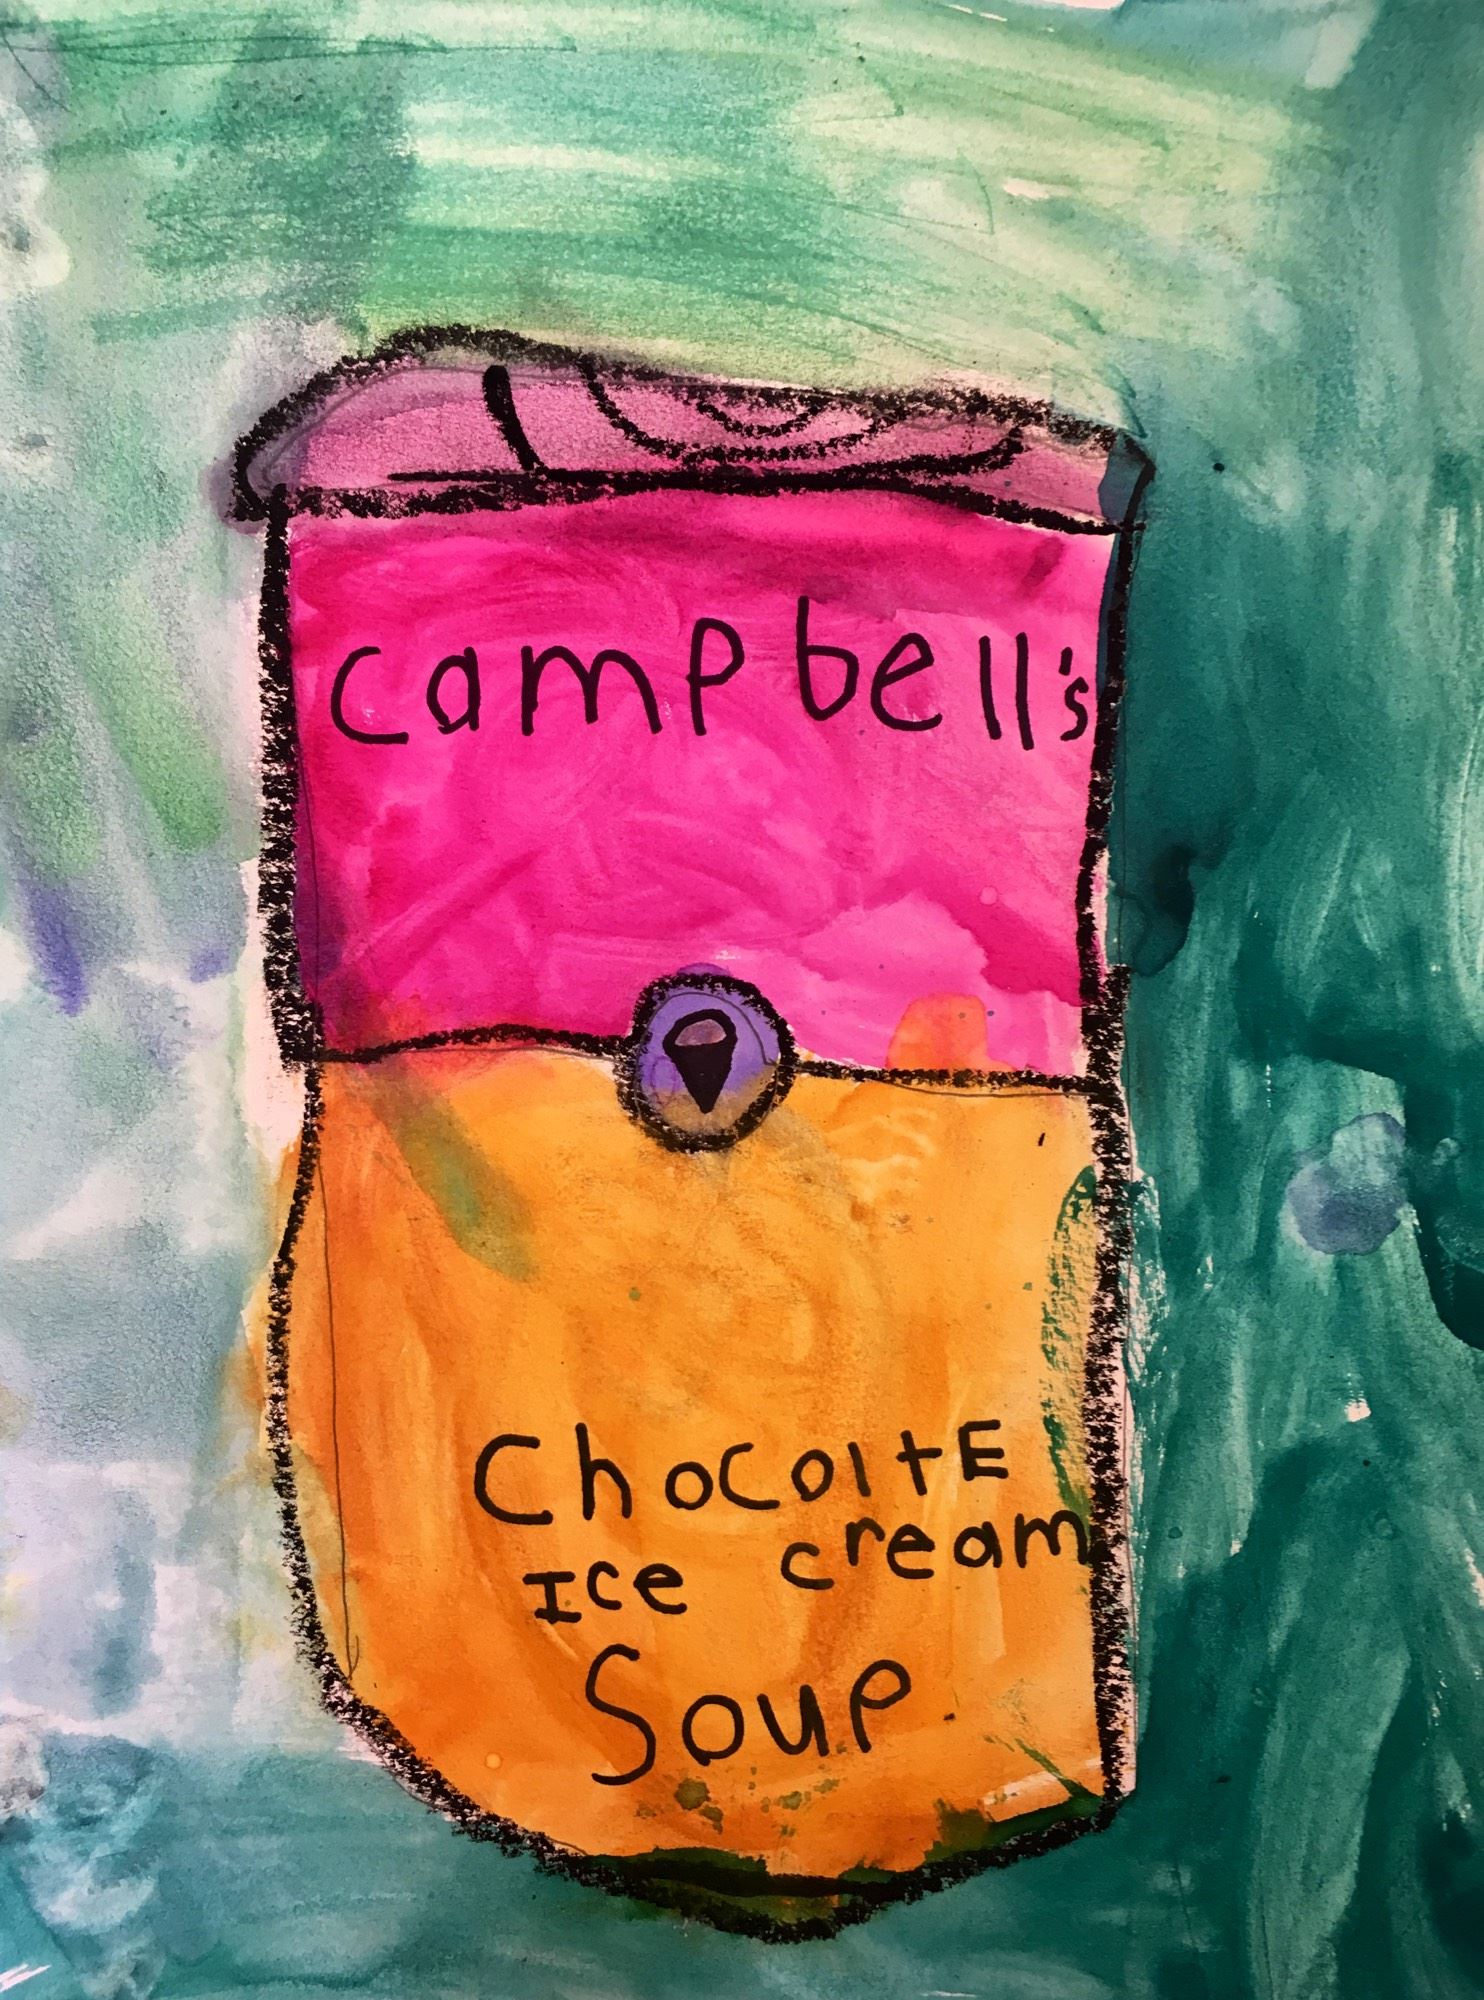 campbell's
ChocoltE
Ice cream
Soup